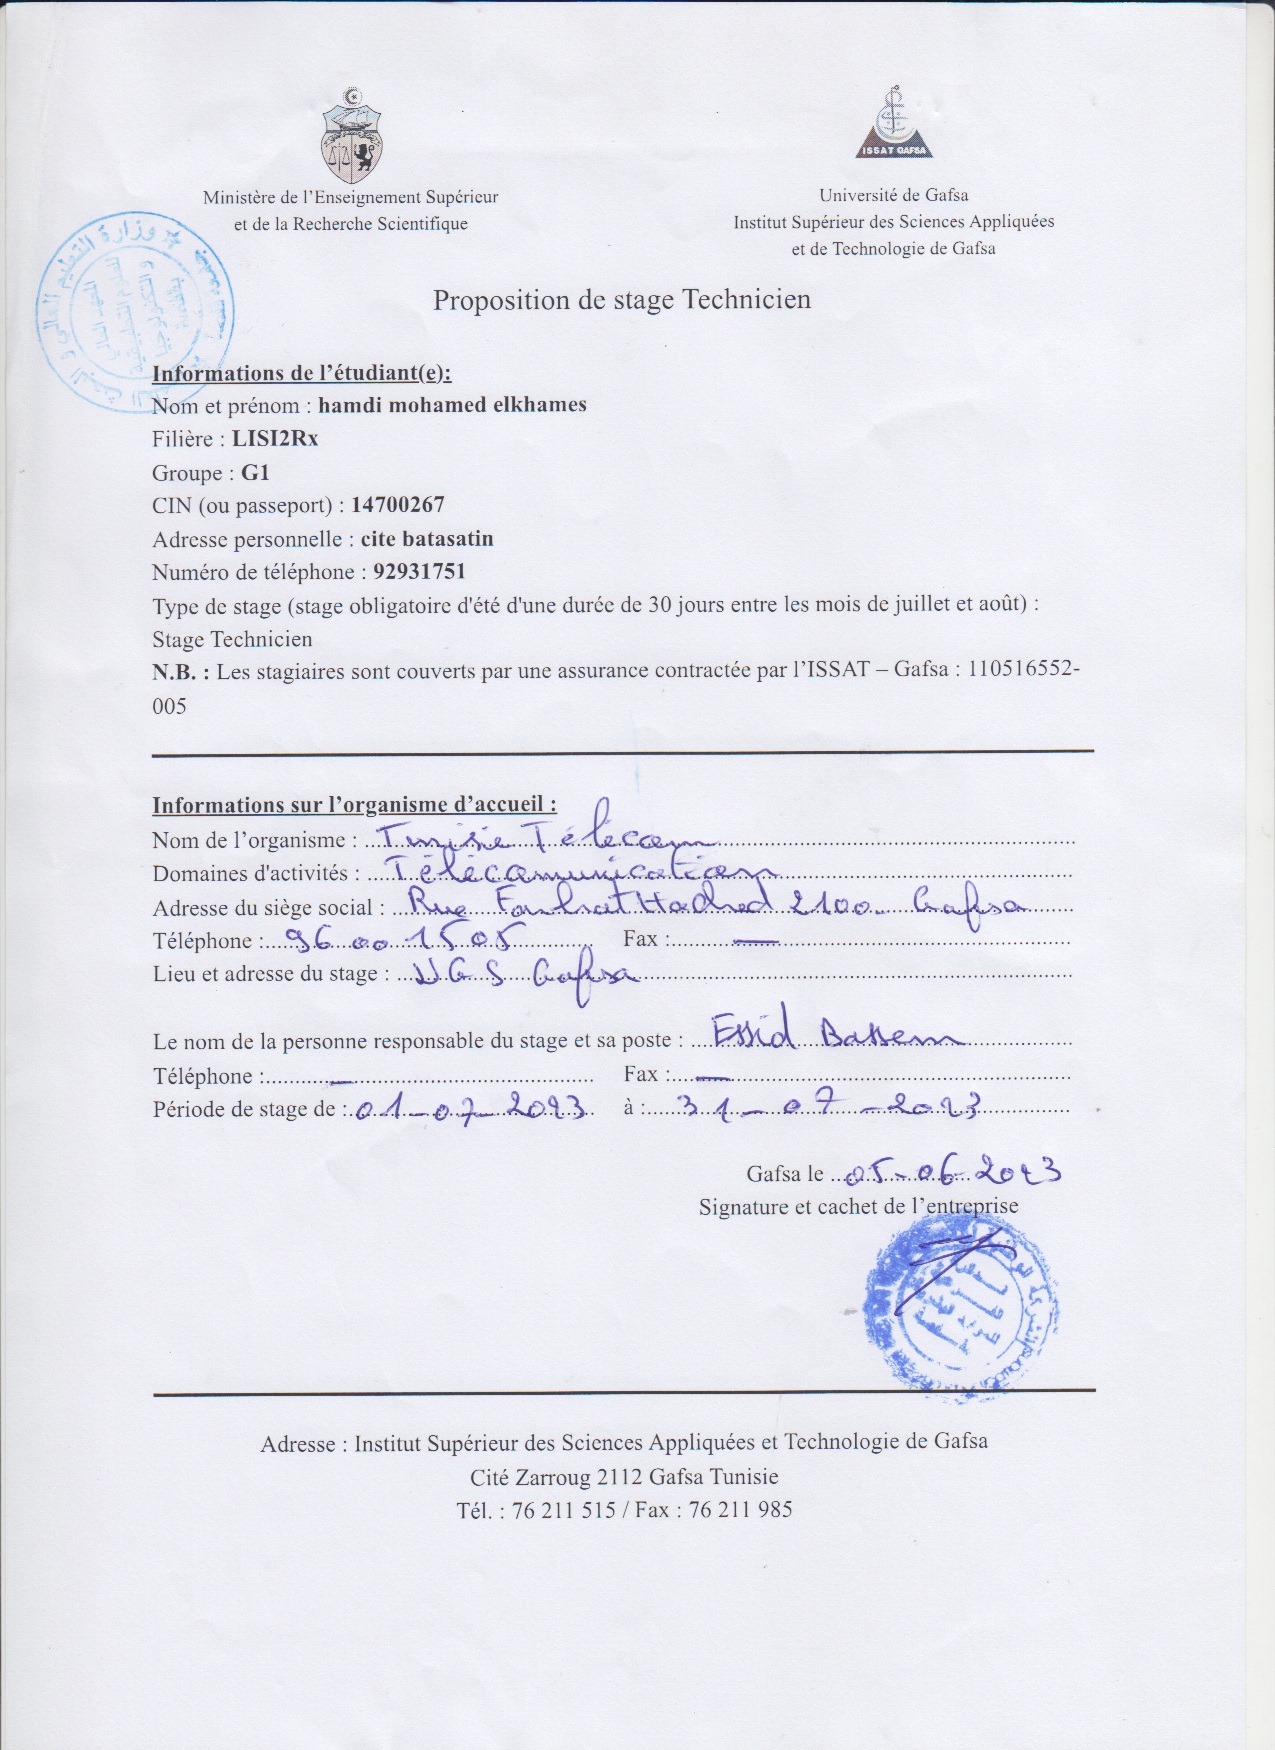 ISSAT GAFSA
Ministère de l'Enseignement Supérieur
et de la Recherche Scientifique
Université de Gafsa
Institut Supérieur des Sciences Appliquées
et de Technologie de Gafsa
وزارة التعليم العالي و البحث العلمي
Proposition de stage Technicien
Informations de l'étudiant(e):
Nom et prénom : hamdi mohamed elkhames
Filière : LISI2Rx
Groupe : G1
CIN (ou passeport) : 14700267
Adresse personnelle : cite batasatin
Numéro de téléphone : 92931751
Type de stage (stage obligatoire d'été d'une durée de 30 jours entre les mois de juillet et août) :
Stage Technicien
N.B. : Les stagiaires sont couverts par une assurance contractée par l'ISSAT – Gafsa : 110516552-
005
Informations sur l'organisme d'accueil :
Nom de l'organisme : Tunisie Télécom
Domaines d'activités : Télécomunication
Adresse du siège social : Rue Farhat Hached 2100 Gafsa
Téléphone : 96 00 15 05 Fax : —
Lieu et adresse du stage : Gafsa
Le nom de la personne responsable du stage et sa poste : Essid Bassem
Téléphone : — Fax : —
Période de stage de : 01-07-2023 à : 31-07-2023
Gafsa le 05-06-2023
Signature et cachet de l'entreprise
Adresse : Institut Supérieur des Sciences Appliquées et Technologie de Gafsa
Cité Zarroug 2112 Gafsa Tunisie
Tél. : 76 211 515 / Fax : 76 211 985